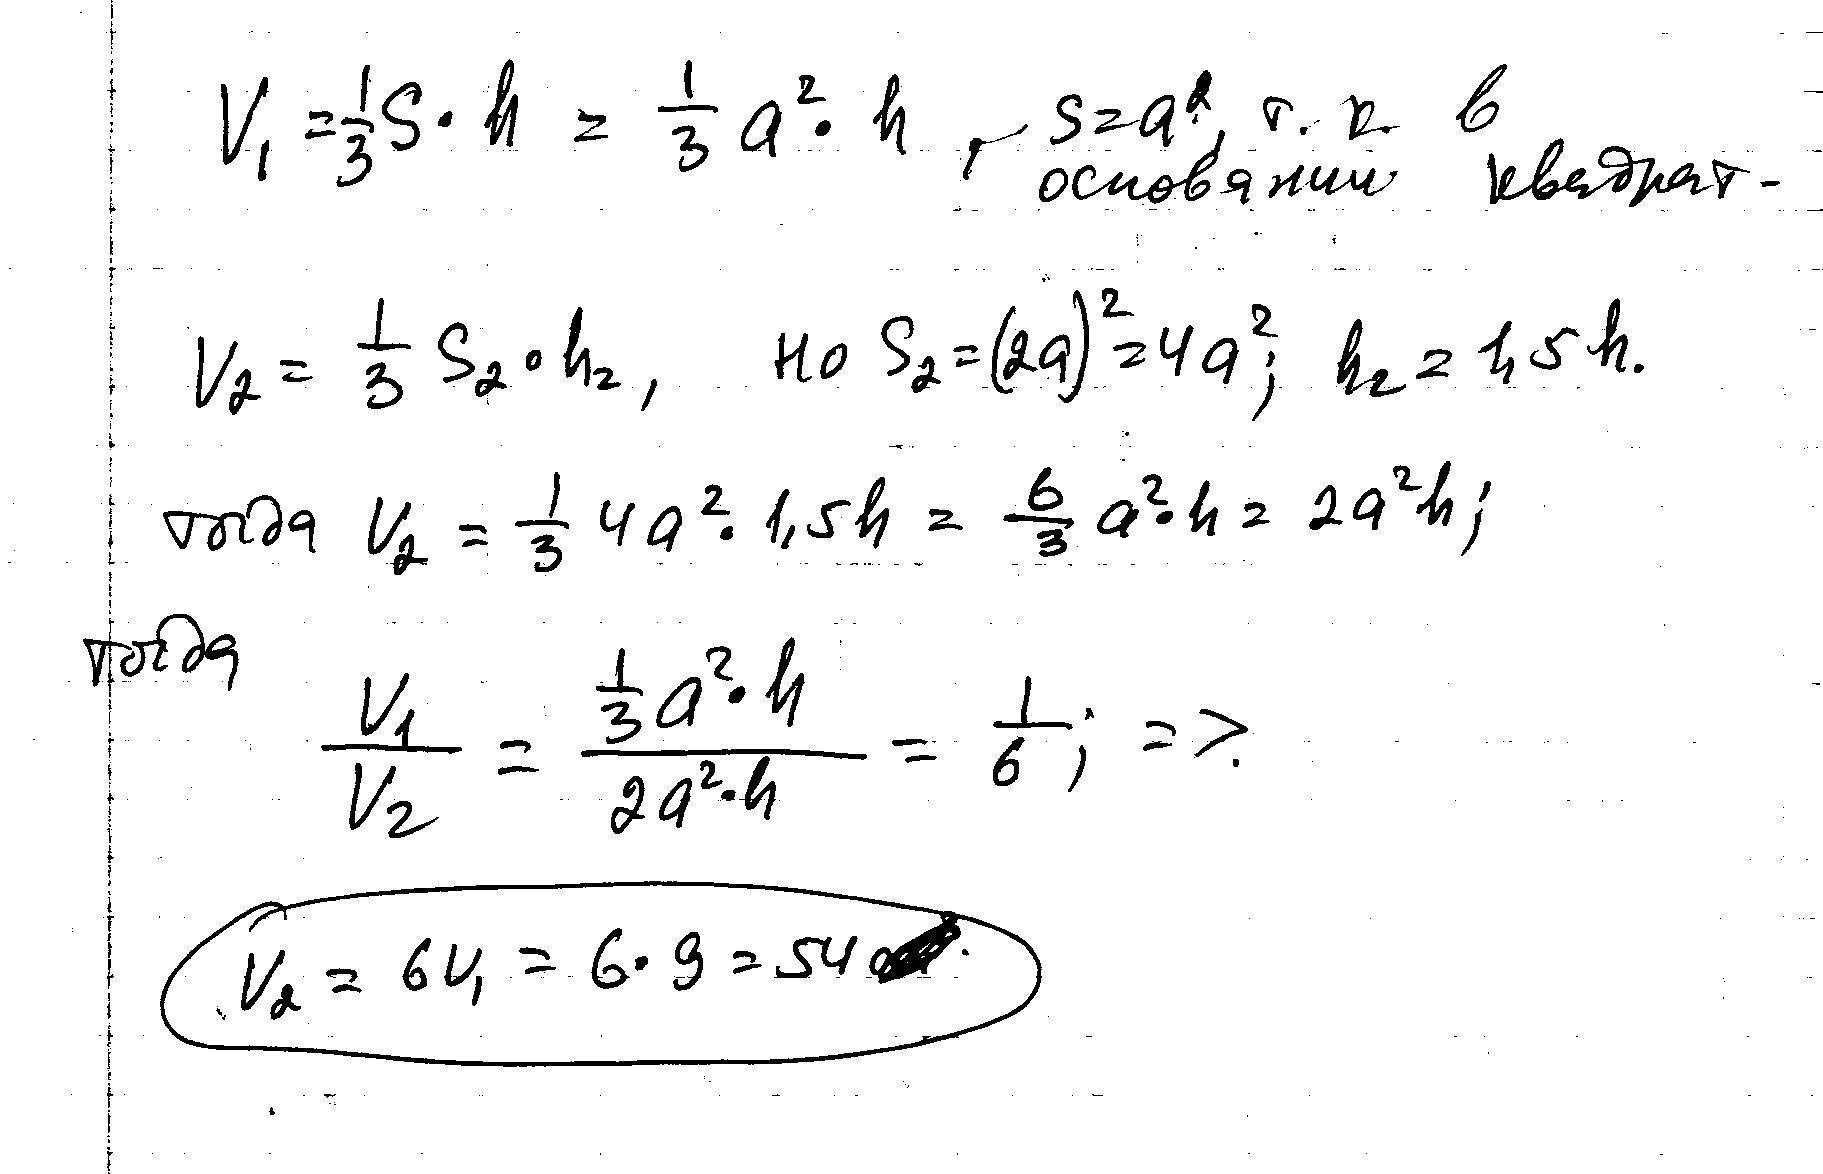 V₁ = 1/3 S · h = 1/3 a² · h, S = a², т. к. в
основании квадрат-
V₂ = 1/3 S₂ · h₂, но S₂ = (2a)² = 4a²; h₂ = 1,5 h.
тогда V₂ = 1/3 4a² · 1,5h = 6/3 a² · h = 2a²h;
тогда
V₁/V₂ = (1/3 a² · h)/(2a² · h) = 1/6; =>.
V₂ = 6V₁ = 6 · 9 = 54